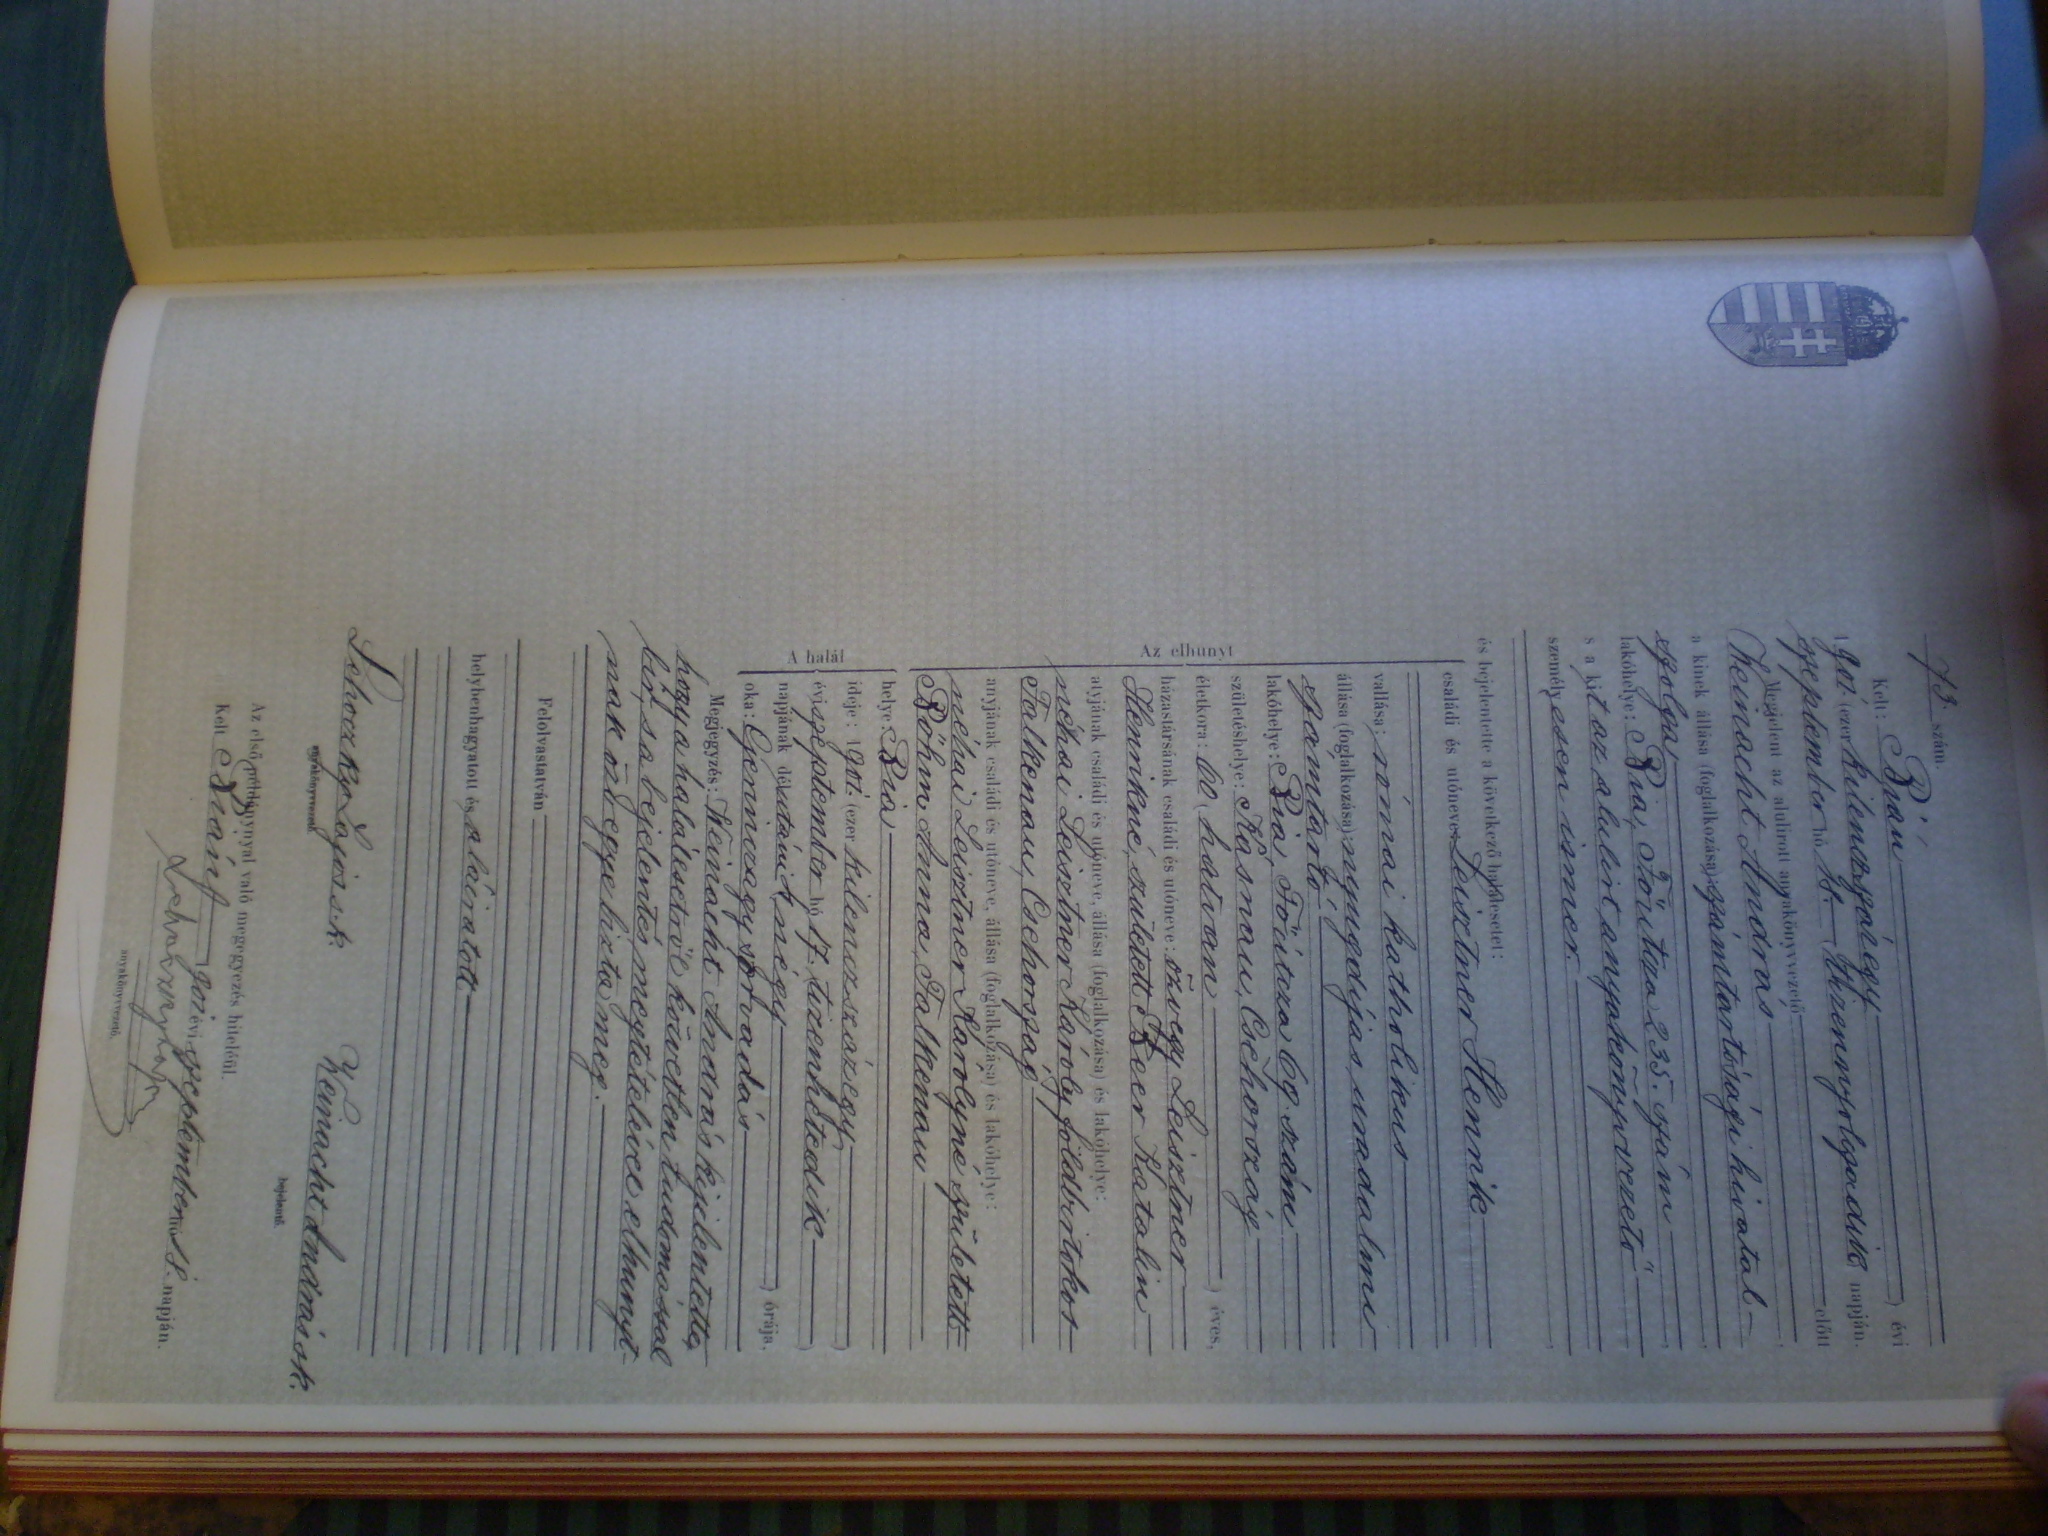 73. szám.
Kelt: Bián ) évi
1901. (ezer kilenczszázegy
szeptember hó 18. (tizennyolczadik) napján.
Megjelent az alulirott anyakönyvvezető előtt
Weinacht András
a kinek állása (foglalkozása): számtartósági hivatal-
szolga
lakóhelye: Bia, Főutcza 235. szám
s a kit az alulirt anyakönyvvezető
személyesen ismer.
és bejelentette a következő halálesetet:
Az elhunyt
családi és utóneve: Leisztner Hennik
vallása: római katholikus
állása (foglalkozása): nyugdíjas, uradalmi
gazdatartó
lakóhelye: Bia, Főutcza 69. szám
születéshelye: Kösnau, Csehország
életkora: 60, hatvan ) éves,
házastársának családi és utóneve: özvegy Leisztner
Hennikné, született Beer Katalin
atyjának családi és utóneve, állása (foglalkozása) és lakóhelye:
néhai Leisztner Károly földbirtokos
Falkenau, Csehország
anyjának családi és utóneve, állása (foglalkozása) és lakóhelye:
néhai Leisztner Károlyné született
Böhm Anna, Falkenau
A halál
helye: Bia
ideje: 1901. (ezer kilenczszázegy )
évi szeptember hó 17. tizenhetedik )
napjának délután 4, négy ) órája.
oka: Genyvagy sorvadás
Megjegyzés: Weinacht András kijelentette,
hogy a halálesetről közvetlen tudomással
bir, s a bejelentés megtételére elhunyt-
nak özvegye bizta meg.
Felolvastatván
helybenhagyatott és aláiratott
Schoczko Lajos s.k. Weinacht András s.k.
anyakönyvvezető. bejelentő.
Az első példánynyal való megegyezés hiteléül.
Kelt Bián 901 évi szeptember hó 18. napján.
anyakönyvvezető.